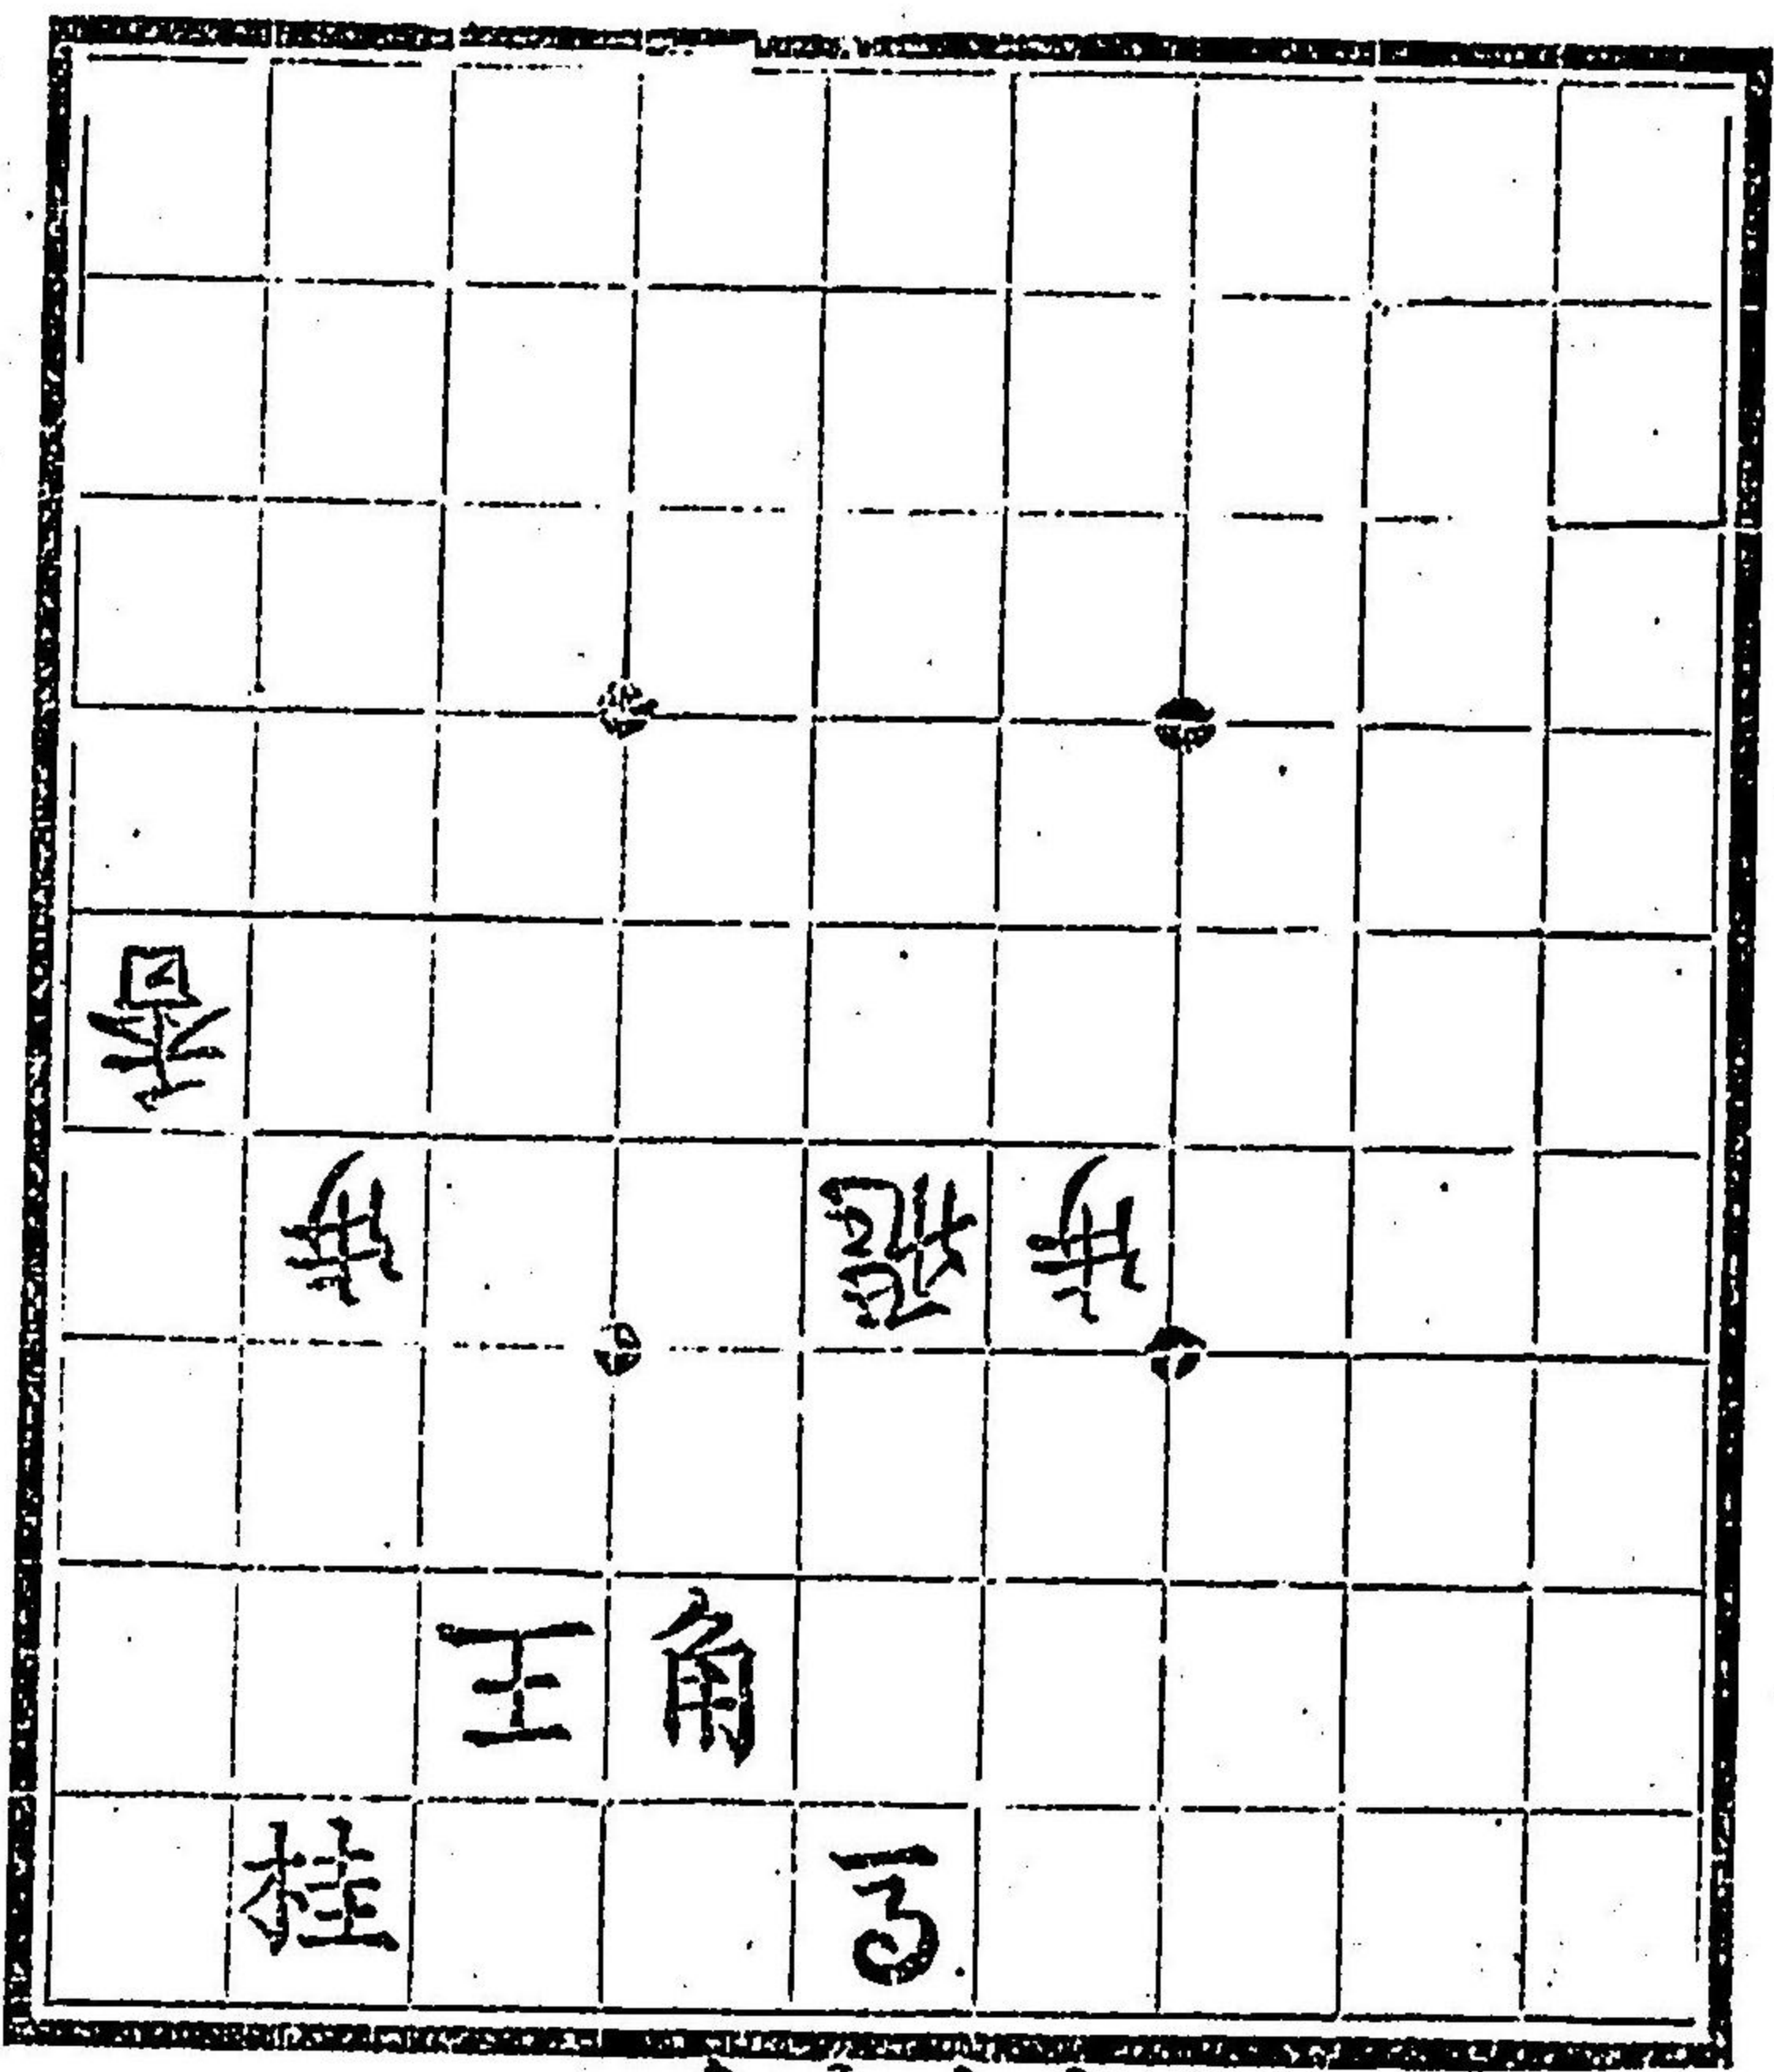 香
歩 飛 歩
王 角
桂